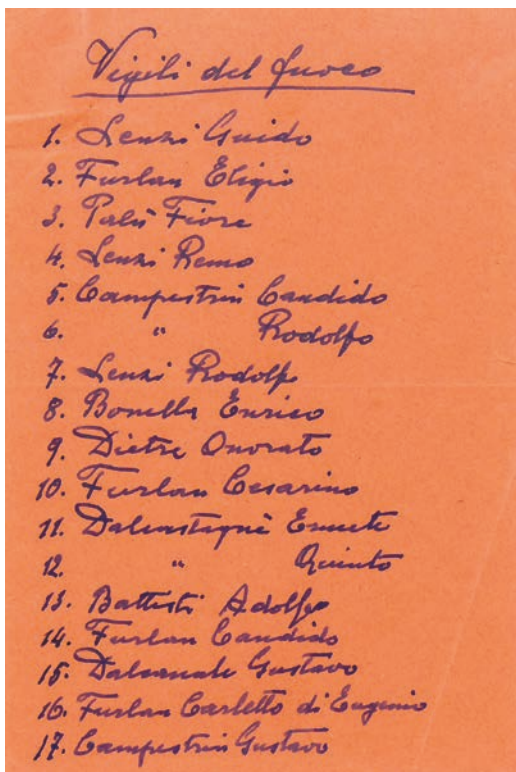 Vigili del fuoco
1. Lenzi Guido
2. Furlan Eligio
3. Palù Fiore
4. Lenzi Remo
5. Campestrin Candido
6. " Rodolfo
7. Lenzi Rodolfo
8. Bonella Enrico
9. Dietre Onorato
10. Furlan Cesarino
11. Dalcastagnè
12. " Quinto
13. Battisti Adolfo
14. Furlan Candido
15. Dalcanale Gustavo
16. Furlan Carletto di Eugenio
17. Campestrin Gustavo